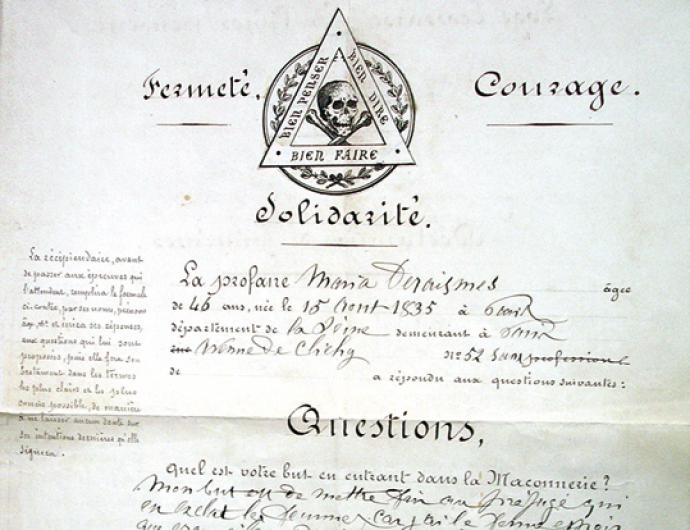 Fermeté.
Courage.
BIEN PENSER
BIEN DIRE
BIEN FAIRE
Solidarité.
La récipiendaire, avant
de passer aux épreuves qui
l'attendent, remplira le formule
ci-contre, par ses noms, prénoms
et écrira ses réponses,
aux questions qui lui sont
proposées, puis elle fera son
testament dans les termes
les plus clairs et les plus
concis possible, de manière
à ne laisser aucun doute sur
ses intentions dernières qu'elle
signera.
La profane Maria Deraismes âgée
de 46 ans, née le 15 Aout 1835 à Paris
département de la Seine demeurant à Paris
rue de Clichy No 52 sans profession
de a répondu aux questions suivantes:
Questions,
Quel est votre but en entrant dans la Maçonnerie?
Mon but est de mettre fin au préjugé qui
en exclut les femmes car